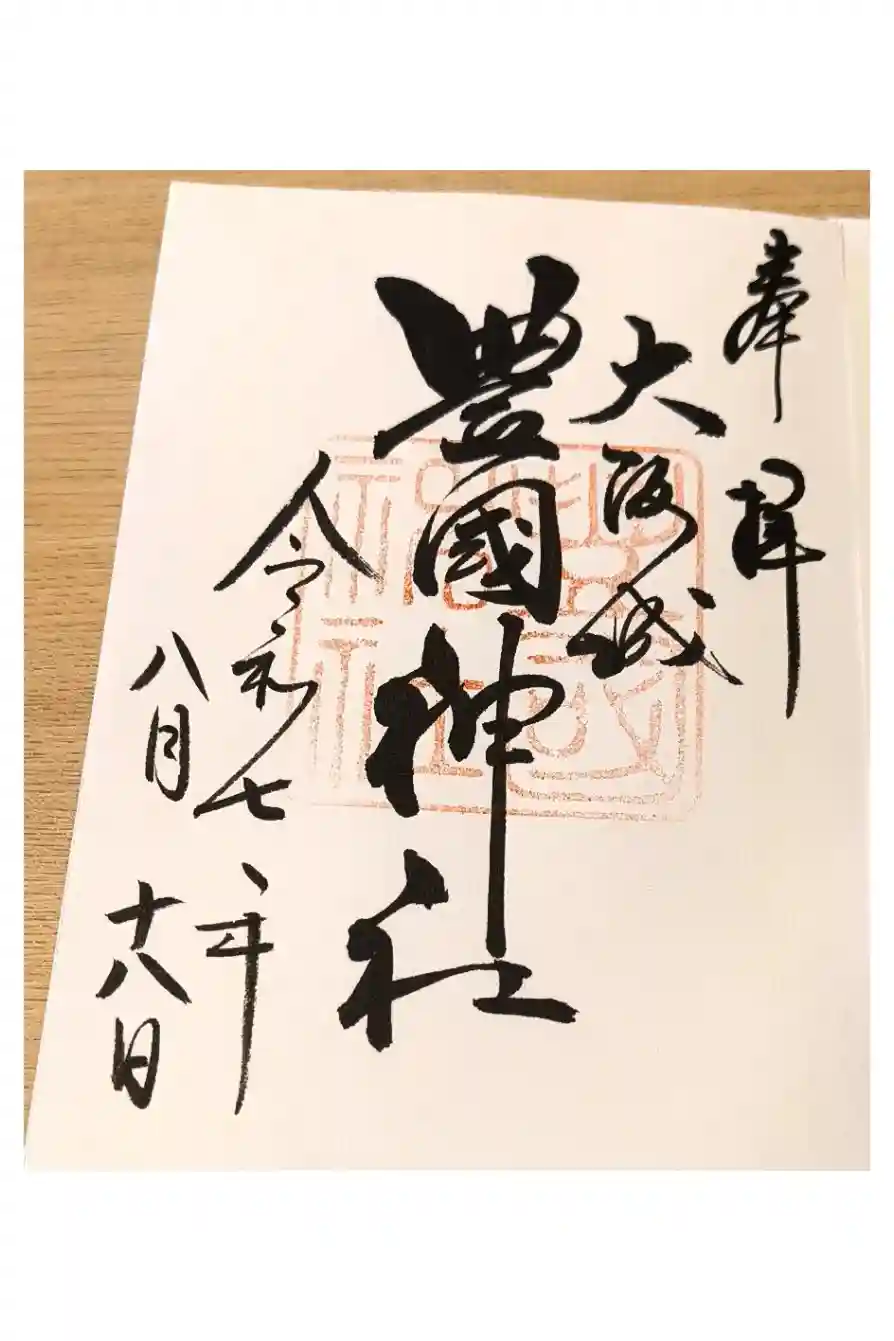 奉拝
大阪城
豐國神社
令和七年
八月十八日